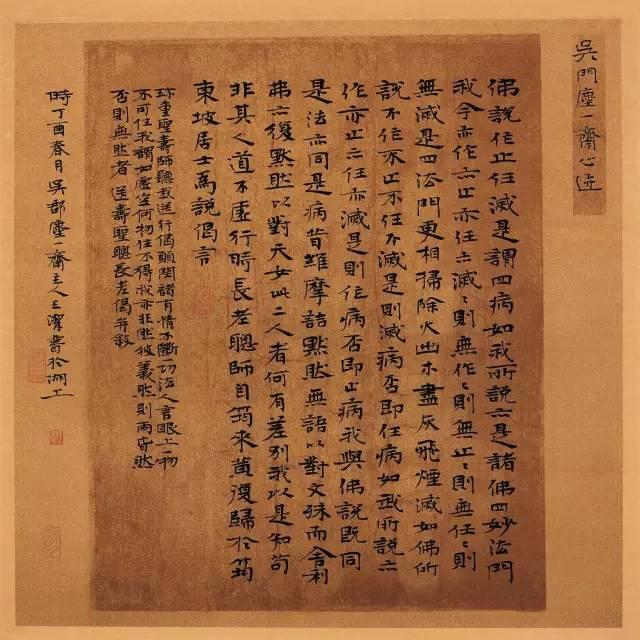 吳門塵一齋心迹
佛說作止任滅是謂四病如我所說亦是諸佛四妙法門
我今亦作亦止亦任亦滅〻則無作〻則無止〻則無任〻則
無滅是四法門更相掃除火出木盡灰飛煙滅如佛所
說不作不止不任不滅是則滅病否即任病如我所說亦
作亦止亦任亦滅是則作病否即止病我與佛說既同
是法亦同是病昔維摩詰默然無語以對文殊而舍利
弗亦復默然以對天女此二人者何有差別我以是知苟
非其人道不虛行時長老聰師自筠來黃復歸於筠
東坡居士為說偈言
珍重聖壽師聽我送行偈願閔諸有情不斷一切法人言眼上一物
不可住我謂如虛空何物住不得我亦非然彼義然則兩皆然
否則無然者 送壽聖聰長老偈并敘
時丁酉春月吳郡塵一齋主人王潔書於湖上